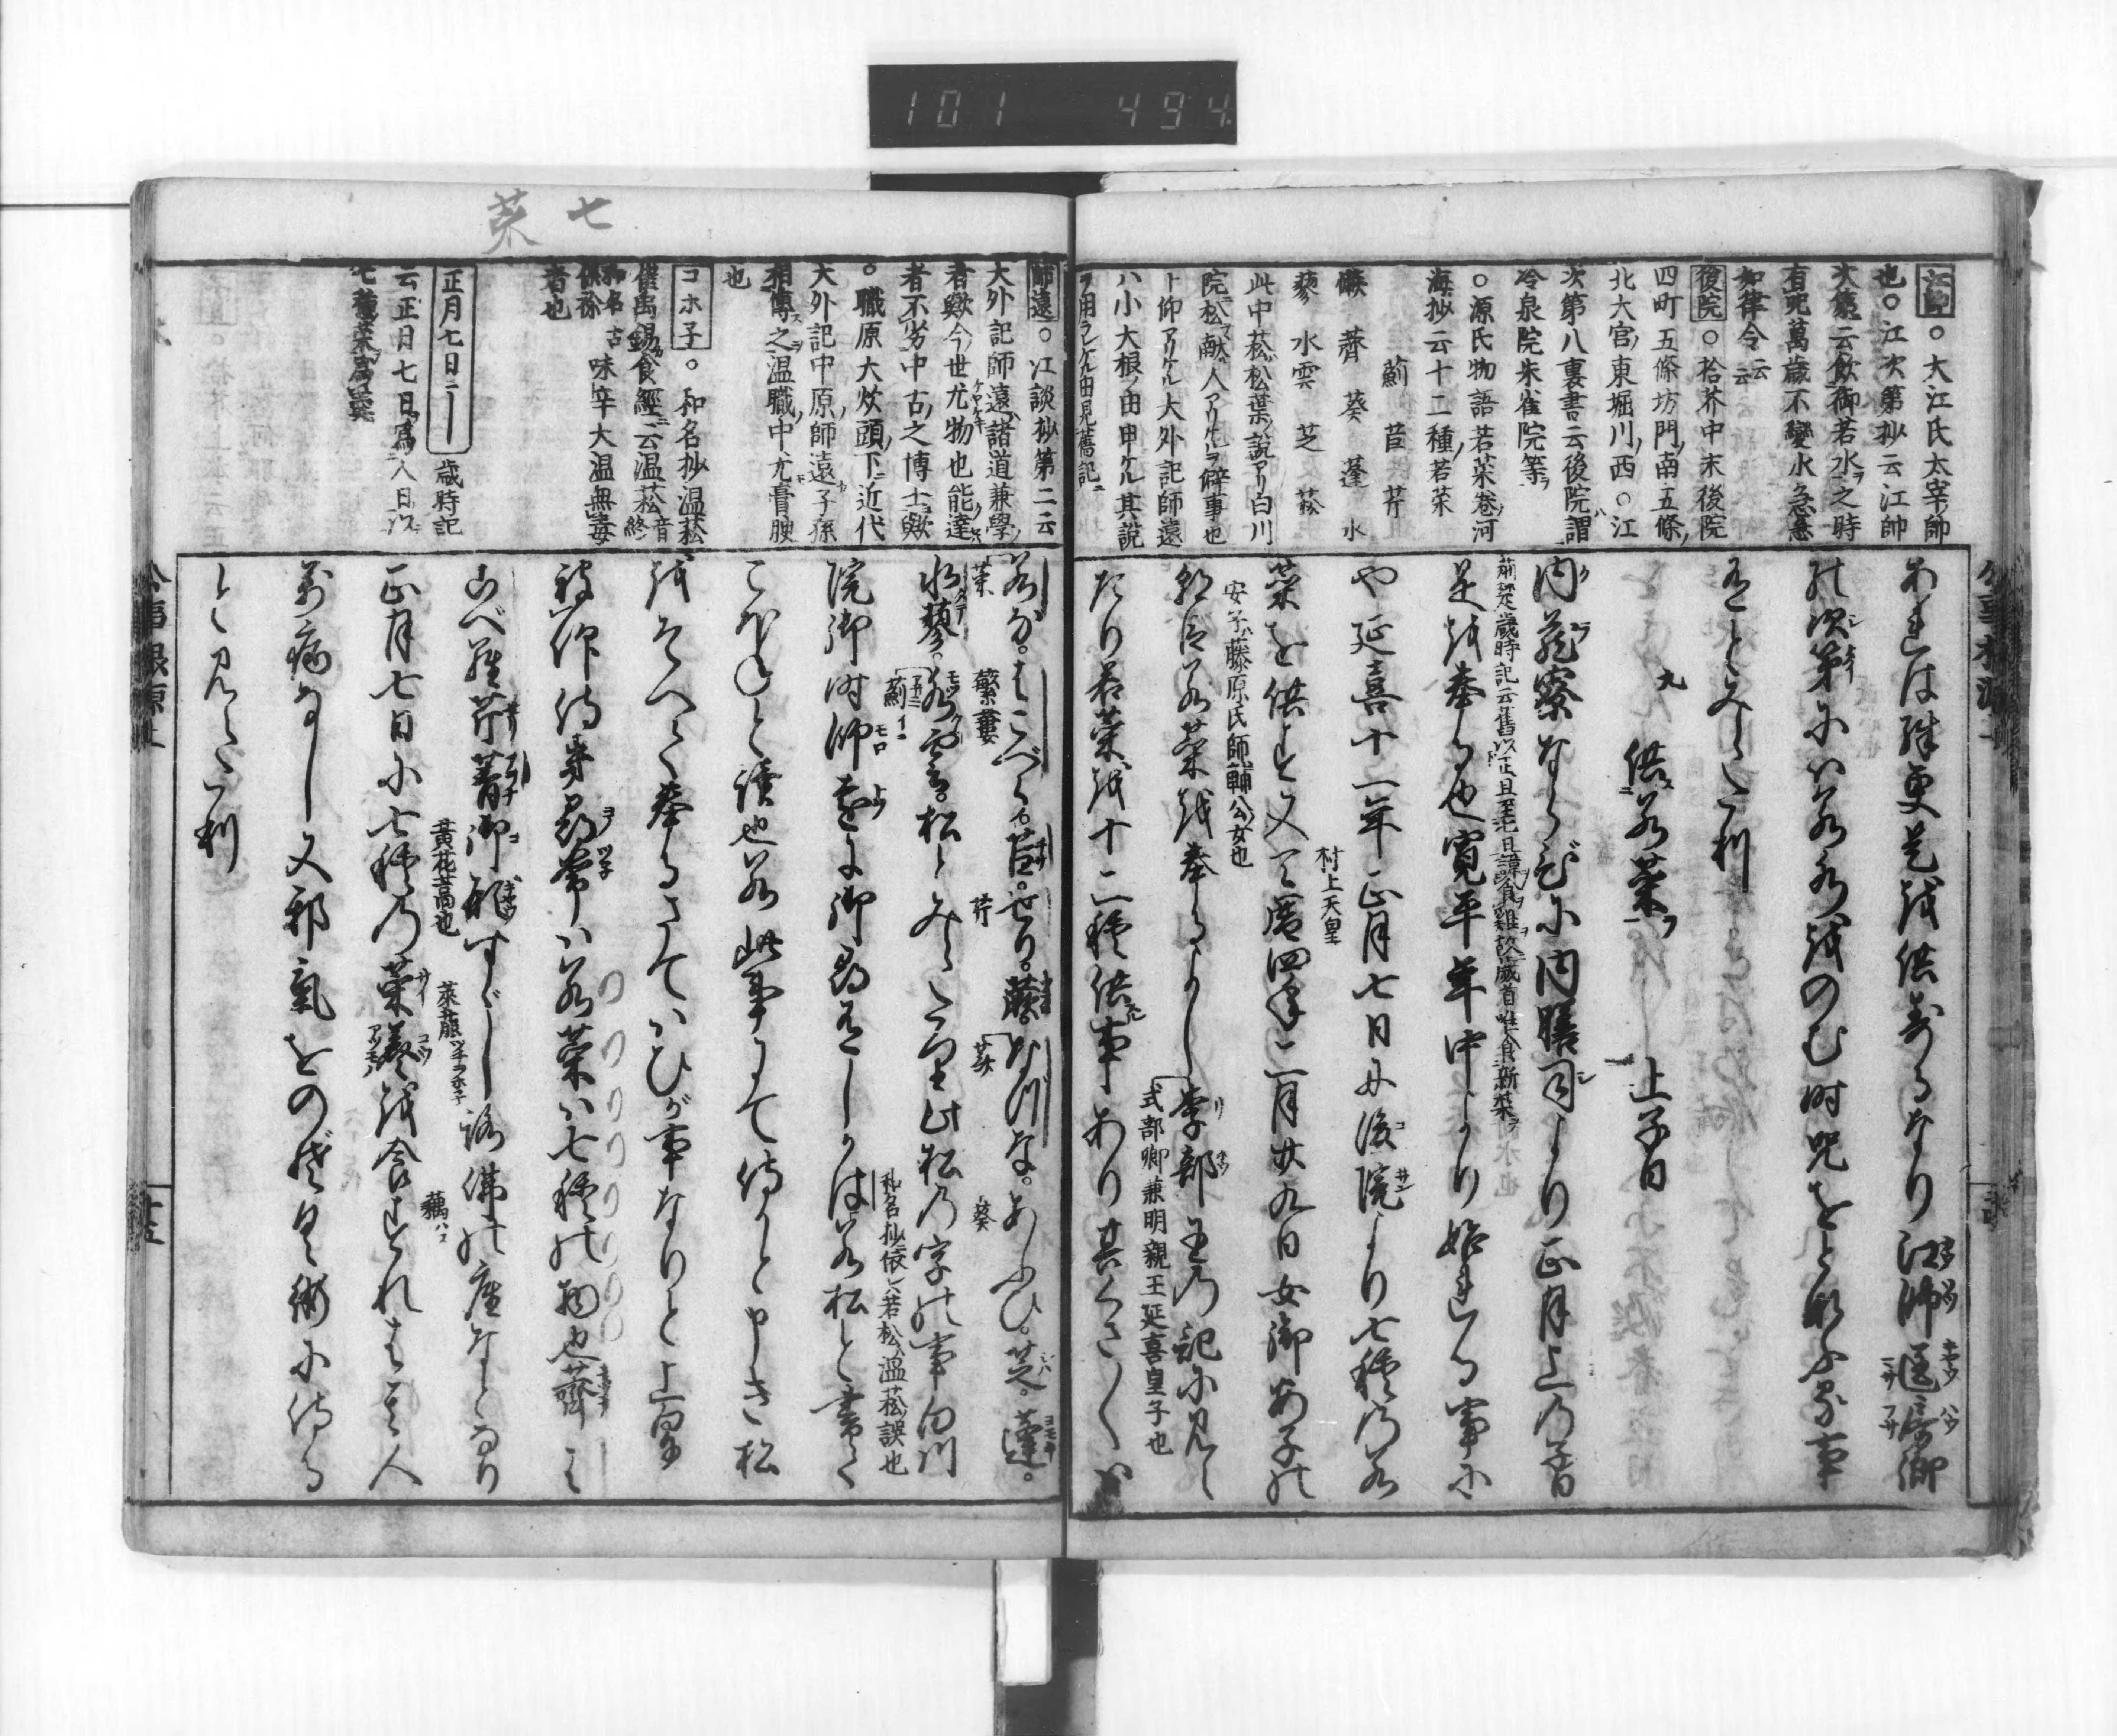 101 494
江帥。大江氏太宰ノ帥
也。江次第抄云江帥
次第云飲御若水ヲ之時
有呪萬歳不變水急々
如律令云云
後院。拾芥中末後院
四町五條坊門ノ南五條ノ
北大宮ノ東堀川ノ西。江
次第八裏書云後院謂
冷泉院朱雀院等ヲ
。源氏物語若菜卷河
海抄云十二種ノ若菜
薊 苣 芹
蕨 薺 葵 蓬 水
蓼 水雲 芝 菘
此中菘松葉ノ説アリ白川
院松ヲ献人アリケルヲ僻事也
ト仰アリケル大外記師遠
ハ小大根ノ由申ケル其説
ヲ用ラレケル由見舊記ニ
あるは殊更是を供ずるなり江帥匡房卿
の次第には若水をのむ時呪をとなふる事
有とみえたり
供若菜 上子日
内藏寮ならびに内膳司より正月上の子日
荊楚歳時記云舊以正旦至七日諱食雞故歳首唯食新菜
是を奉る也寛平年中より始れる事に
や延喜十一年正月七日に後院より七種の若
村上天皇
菜を供ず又天暦四年二月廿九日女御安子の
安子ハ藤原氏師輔公ノ女也
朝臣若菜を奉るよし李部王の記に見え
式部卿兼明親王延喜皇子也
たり若菜を十二種供事あり其くさ〴〵は
七菜
師遠。江談抄第二云
大外記師遠ハ諸道兼學ノ
者歟今ノ世尤物也能達
者不劣中古ノ之博士ニ歟
。職原大炊頭ノ下ニ近代
大外記中原ノ師遠子孫
相傳之温職ノ中尤膏腴
也
コホ子。和名抄温菘
崔禹錫食經ニ云温菘音終
和名古保祢味辛大温無毒
者也
正月七日ニ― 歳時記
云正月七日爲人日以
七種菜爲羹
若菜。はこべら。苣。せり。蕨。なづな。あふひ。芝。蓬。
菜 蘩蔞 芹 薺 葵
水蓼。水雲。松とみえたり此松の字の事白川
薊イニ
院御時師遠に御尋有しかば若松と書て
和名抄依ハ若松ハ温菘ノ誤也
こほねと讀也若此事にて侍るとやらん松
をそへて奉るさてはひが事なりと上皇
被仰侍尋常は若菜は七種の物也薺はこ
べら芹菁御形すゞしろ佛の座などなり
黄花蒿也 萊菔
正月七日に七種の菜羹を食すればその人
万病なし又邪氣をのぞく術に侍る
と見えたり
公事根源上